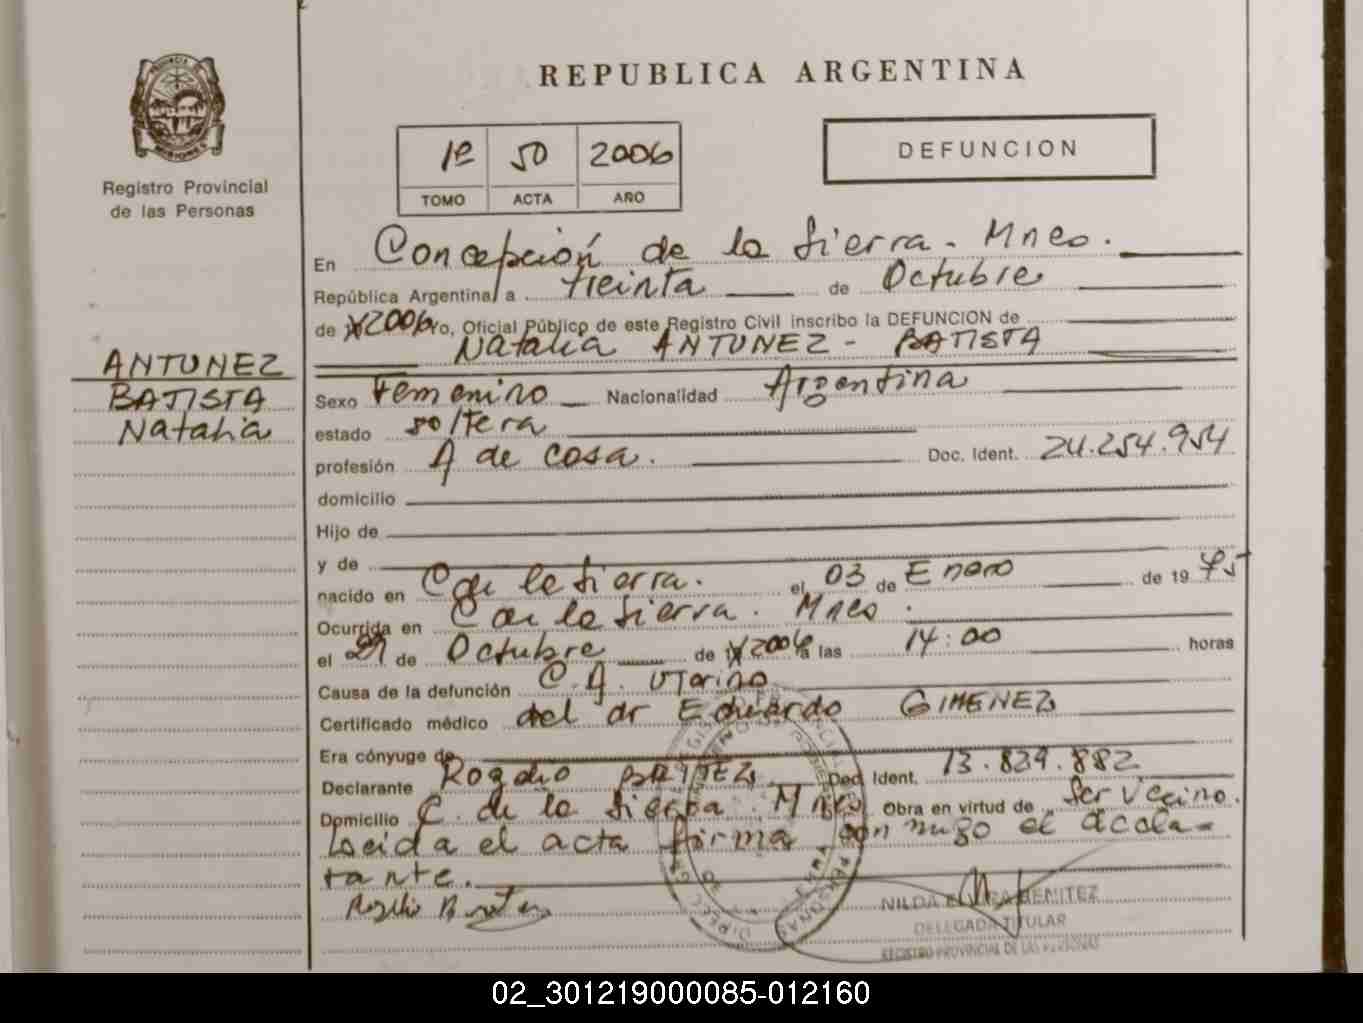 REPUBLICA ARGENTINA
Registro Provincial
de las Personas
1º 50 2006
TOMO ACTA AÑO
DEFUNCION
En Concepción de la Sierra - Mnes.
República Argentina, a treinta de Octubre
de 2006 Yo, Oficial Público de este Registro Civil inscribo la DEFUNCION de
Natalia ANTUNEZ - BATISTA
ANTUNEZ
BATISTA
Natalia
Sexo Femenino Nacionalidad Argentina
estado soltera
profesión A de casa. Doc. Ident. 24.254.954
domicilio
Hijo de
y de
nacido en C de la Sierra. el 03 de Enero de 1975
Ocurrida en C de la Sierra. Mnes.
el de Octubre de 2006 a las 14:00 horas
Causa de la defunción C.A. Uterino
Certificado médico del dr Eduardo GIMENEZ
Era cónyuge de
Declarante Rogelio Doc. Ident. 13.829.882
Domicilio C. de la Sierra Mnes Obra en virtud de Ser Vecino.
Leida el acta firma con migo el decla-
rante.
NILDA BENITEZ
DELEGADA TITULAR
REGISTRO PROVINCIAL DE LAS PERSONAS
02_301219000085-012160